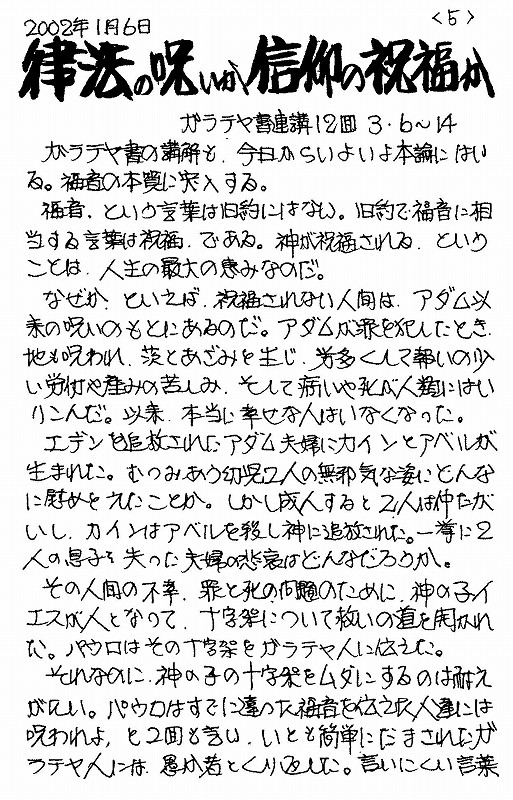 2002年1月6日 <5>
律法の呪いか信仰の祝福か
ガラテヤ書連講12回 3・6〜14
ガラテヤ書の講解も、今日からいよいよ本論にはい
る。福音の本質に突入する。
福音、という言葉は旧約にはない。旧約で福音に相
当する言葉は祝福、である。神が祝福される、という
ことは、人生の最大の恵みなのだ。
なぜか、といえば、祝福されない人間は、アダム以
来の呪いのもとにあるのだ。アダムが罪を犯したとき、
地も呪われ、茨とあざみを生じ、労多くして報いの少
い労働や産みの苦しみ、そして病いや死が人類にはい
りこんだ。以来、本当に幸せな人はいなくなった。
エデンを追放されたアダム夫婦にカインとアベルが
生まれた。むつみあう幼児2人の無邪気な姿にどんな
に慰めをえたことか。しかし成人すると2人は仲たが
いし、カインはアベルを殺し神に追放された。一挙に2
人の息子を失った夫婦の悲哀はどんなだろうか。
その人間の不幸、罪と死の問題のために、神の子イ
エスが人となって、十字架について救いの道を開かれ
た。パウロはその十字架をガラテヤ人に伝えた。
それなのに、神の子の十字架をムダにするのは耐え
がたい。パウロはすでに違った福音を伝えた人達には
呪われよ、と2回も言い、いとも簡単にだまされたガ
ラテヤ人には、愚か者とくりかえした。言いにくい言葉